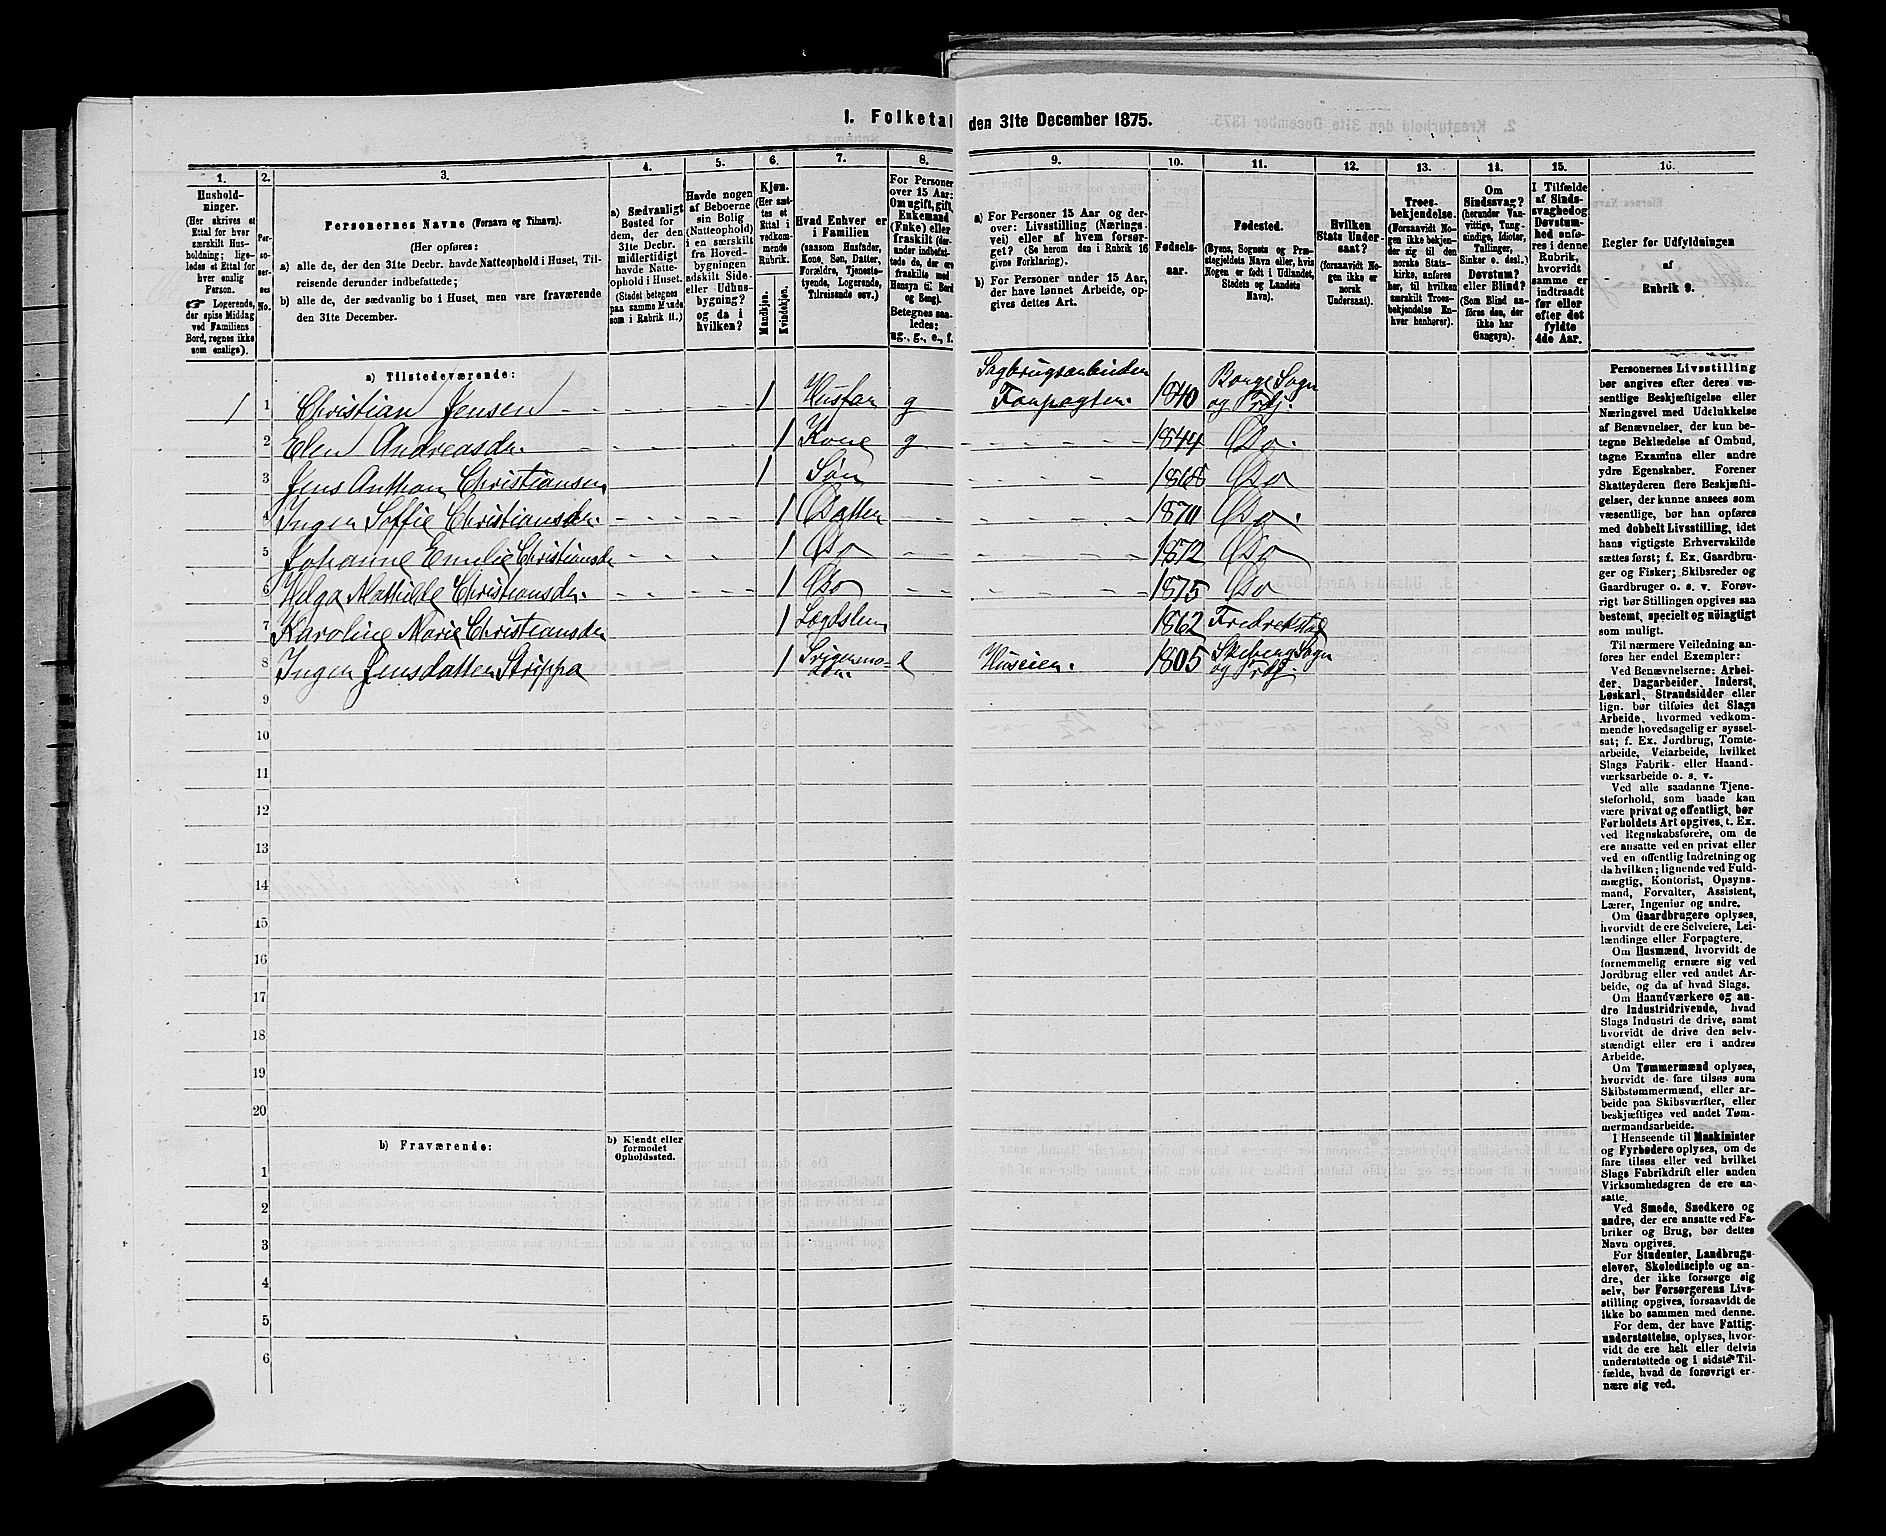 1. Folketal den 31te December 1875.
1. 2. 3. 4. 5. 6. 7. 8. 9. 10. 11. 12. 13. 14. 15. 16.
Hushold-
ninger.
(Her skrives et
Ettal for hver
særskilt Hus-
holdning; lige-
ledes et Ettal for
hver enslig
Person.
☞ Logerende,
der spise Middag
ved Familiens
Bord, regnes ikke
som enslige).
Per-
so-
ner-
nes
No.
Personernes Navne (Fornavn og Tilnavn).
(Her opføres:
a) alle de, der den 31te Decbr. havde Natteophold i Huset, Til-
reisende derunder indbefattede;
b) alle de, der sædvanlig bo i Huset, men vare fraværende
den 31te December.
a) Sædvanligt
Bosted for
dem, der den
31te Decbr.
midlertidigt
havde Natte-
ophold i Huset.
(Stedet betegnes
paa samme Maade,
som i Rubrik 11.)
Havde nogen
af Beboerne
sin Bolig
(Natteophold)
i en særskilt
fra Hoved-
bygningen
adskilt Side-
eller Udhus-
bygning?
og da i
hvilken?
Kjøn.
(Her sæt-
tes et
Ettal i
vedkom-
mende
Rubrik.
Mandkjøn.
Kvindekjøn.
Hvad Enhver er
i Familien
(saasom Husfader,
Kone, Søn, Datter,
Forældre, Tjeneste-
tyende, Logerende,
Tilreisende osv.)
For Personer
over 15 Aar:
Om ugift, gift,
Enkemand
(Enke) eller
fraskilt (der-
under indbefat-
tede de, der ere
fraskilte med
Hensyn til Bord
og Seng).
Betegnes saa-
ledes:
ug., g., e., f.
a) For Personer 15 Aar og der-
over: Livsstilling (Nærings-
vei) eller af hvem forsør-
get? (Se herom den i Rubrik 16
givne Forklaring).
b) For Personer under 15 Aar,
der have lønnet Arbeide, op-
gives dettes Art.
Fødsels-
aar.
Fødested.
(Byens, Sognets og Præ-
stegjeldets Navn eller, hvis
Nogen er født i Udlandet,
Stedets og Landets
Navn).
Hvilken
Stats Under-
saat?
(forsaavidt No-
gen ikke er
norsk
Undersaat).
Troes-
bekjendelse.
(Forsaavidt No-
gen ikke bekjen-
der sig til den
norske Stats-
kirke, anføres
her, til hvilken
særskilt Troes-
bekjendelse En-
hver henhører).
Om
Sindssvag?
(herunder Van-
vittige, Tung-
sindige, Idioter,
Tullinger,
Sinker o. desl.)
Døvstum?
eller Blind?
(Som Blind an-
føres den, der
ikke har
Gangsyn).
I Tilfælde
af Sinds-
svaghed og
Døvstum-
hed anføres
i denne
Rubrik,
hvorvidt
samme er
indtraadt
før eller
efter det
fyldte
4de Aar.
Regler for Udfyldningen
af
Rubrik 9.
a) Tilstedeværende:
Sagbrugsarbeider Borge Sogn
1 1 Christian Jensen 1 Husfar g Forpagter. 1840 og Prdj.
2 Elen Andreasdr. 1 Kone g 1844 Do.
3 Jens Anthon Christiansen 1 Søn 1868 Do
4 Inger Soffie Christiansdr. 1 Datter 1870 Do.
5 Johanne Emelie Christiansdr 1 Do 1872 Do
6 Helga Mathilde Christiansdr. 1 Do 1875 Do
7 Karoline Marie Christiansdr 1 Lægdslem 1862 Fredrekstad
8 Inger Jensdatter Strippa 1 Svigermo- e Huseier. 1805 Skeberg Sogn
der. og Prdj.
9
10
11
12
13
14
15
16
17
18
19
20
b) Fraværende:
b) Kjendt eller
formodet
Opholdssted.
1
2
3
4
5
6
Personernes Livsstilling
bør angives efter deres væ-
sentlige Beskjæftigelse eller
Næringsvei med Udelukkelse
af Benævnelser, der kun be-
tegne Beklædelse af Ombud,
tagne Examina eller andre
ydre Egenskaber. Forener
Skatteyderen flere Beskjæfti-
gelser, der kunne ansees som
væsentlige, bør han opføres
med dobbelt Livsstilling, idet
hans vigtigste Erhvervskilde
sættes først; f. Ex. Gaardbru-
ger og Fisker; Skibsreder og
Gaardbruger o. s. v. Forøv-
rigt bør Stillingen opgives saa
bestemt, specielt og nöiagtigt
som muligt.
Til nærmere Veiledning an-
føres her endel Exempler:
Ved Benævnelserne: Arbei-
der, Dagarbeider, Inderst,
Løskarl, Strandsidder eller
lign. bør tilføies det Slags
Arbeide, hvormed vedkom-
mende hovedsagelig er syssel-
sat; f. Ex. Jordbrug, Tomte-
arbeide, Veiarbeide, hvilket
Slags Fabrik- eller Haand-
værksarbeide o. s. v.
Ved alle saadanne Tjene-
steforhold, som baade kan
være privat og offentligt, bør
Forholdets Art opgives, t. Ex.
ved Regnskabsførere, om de
ere ansatte ved en privat eller
ved en offentlig Indretning og
da hvilken; lignende ved Fuld-
mægtig, Kontorist, Opsyns-
mand, Forvalter, Assistent,
Lærer, Ingeniør og andre.
Om Gaardbrugere oplyses,
hvorvidt de ere Selveiere, Lei-
lændinge eller Forpagtere.
Om Husmænd, hvorvidt de
fornemmelig ernære sig ved
Jordbrug eller ved andet Ar-
beide, og da af hvad Slags.
Om Haandværkere og an-
dre Industridrivende, hvad
Slags Industri de drive, samt
hvorvidt de drive den selv-
stændigt eller ere i andres
Arbeide.
Om Tømmermænd oplyses,
hvorvidt de fare tilsøs som
Skibstømmermænd, eller ar-
beide paa Skibsværfter, eller
beskjæftiges ved andet Tøm-
mermandsarbeide.
I Henseende til Maskinister
og Fyrbødere oplyses, om de
fare tilsøs eller ved hvilket
Slags Fabrikdrift eller anden
Virksomhedsgren de ere an-
satte.
Ved Smede, Snedkere og
andre, der ere ansatte ved Fa-
briker og Brug, bør dettes
Navn opgives.
For Studenter, Landbrugs-
elever, Skoledisciple og an-
dre, der ikke forsørge sig
selv, bør Forsørgerens Livs-
stilling opgives, forsaavidt de
ikke bo sammen med denne.
For dem, der have Fattig-
understøttelse, oplyses, hvor-
vidt de ere helt eller delvis
understøttede og i sidste Til-
fælde, hvad de forøvrigt er-
nære sig ved.